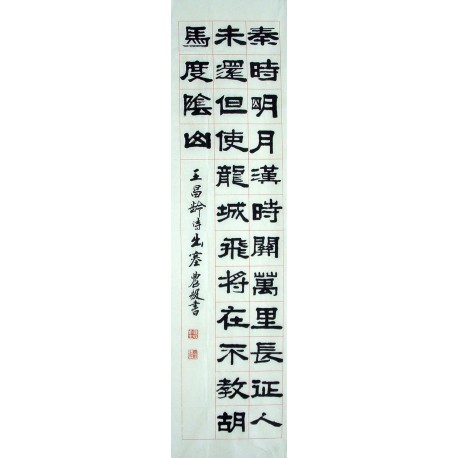 秦時明月漢時關萬里長征人
未還但使龍城飛將在不教胡
馬度陰山
王昌齡詩出塞 農叟書